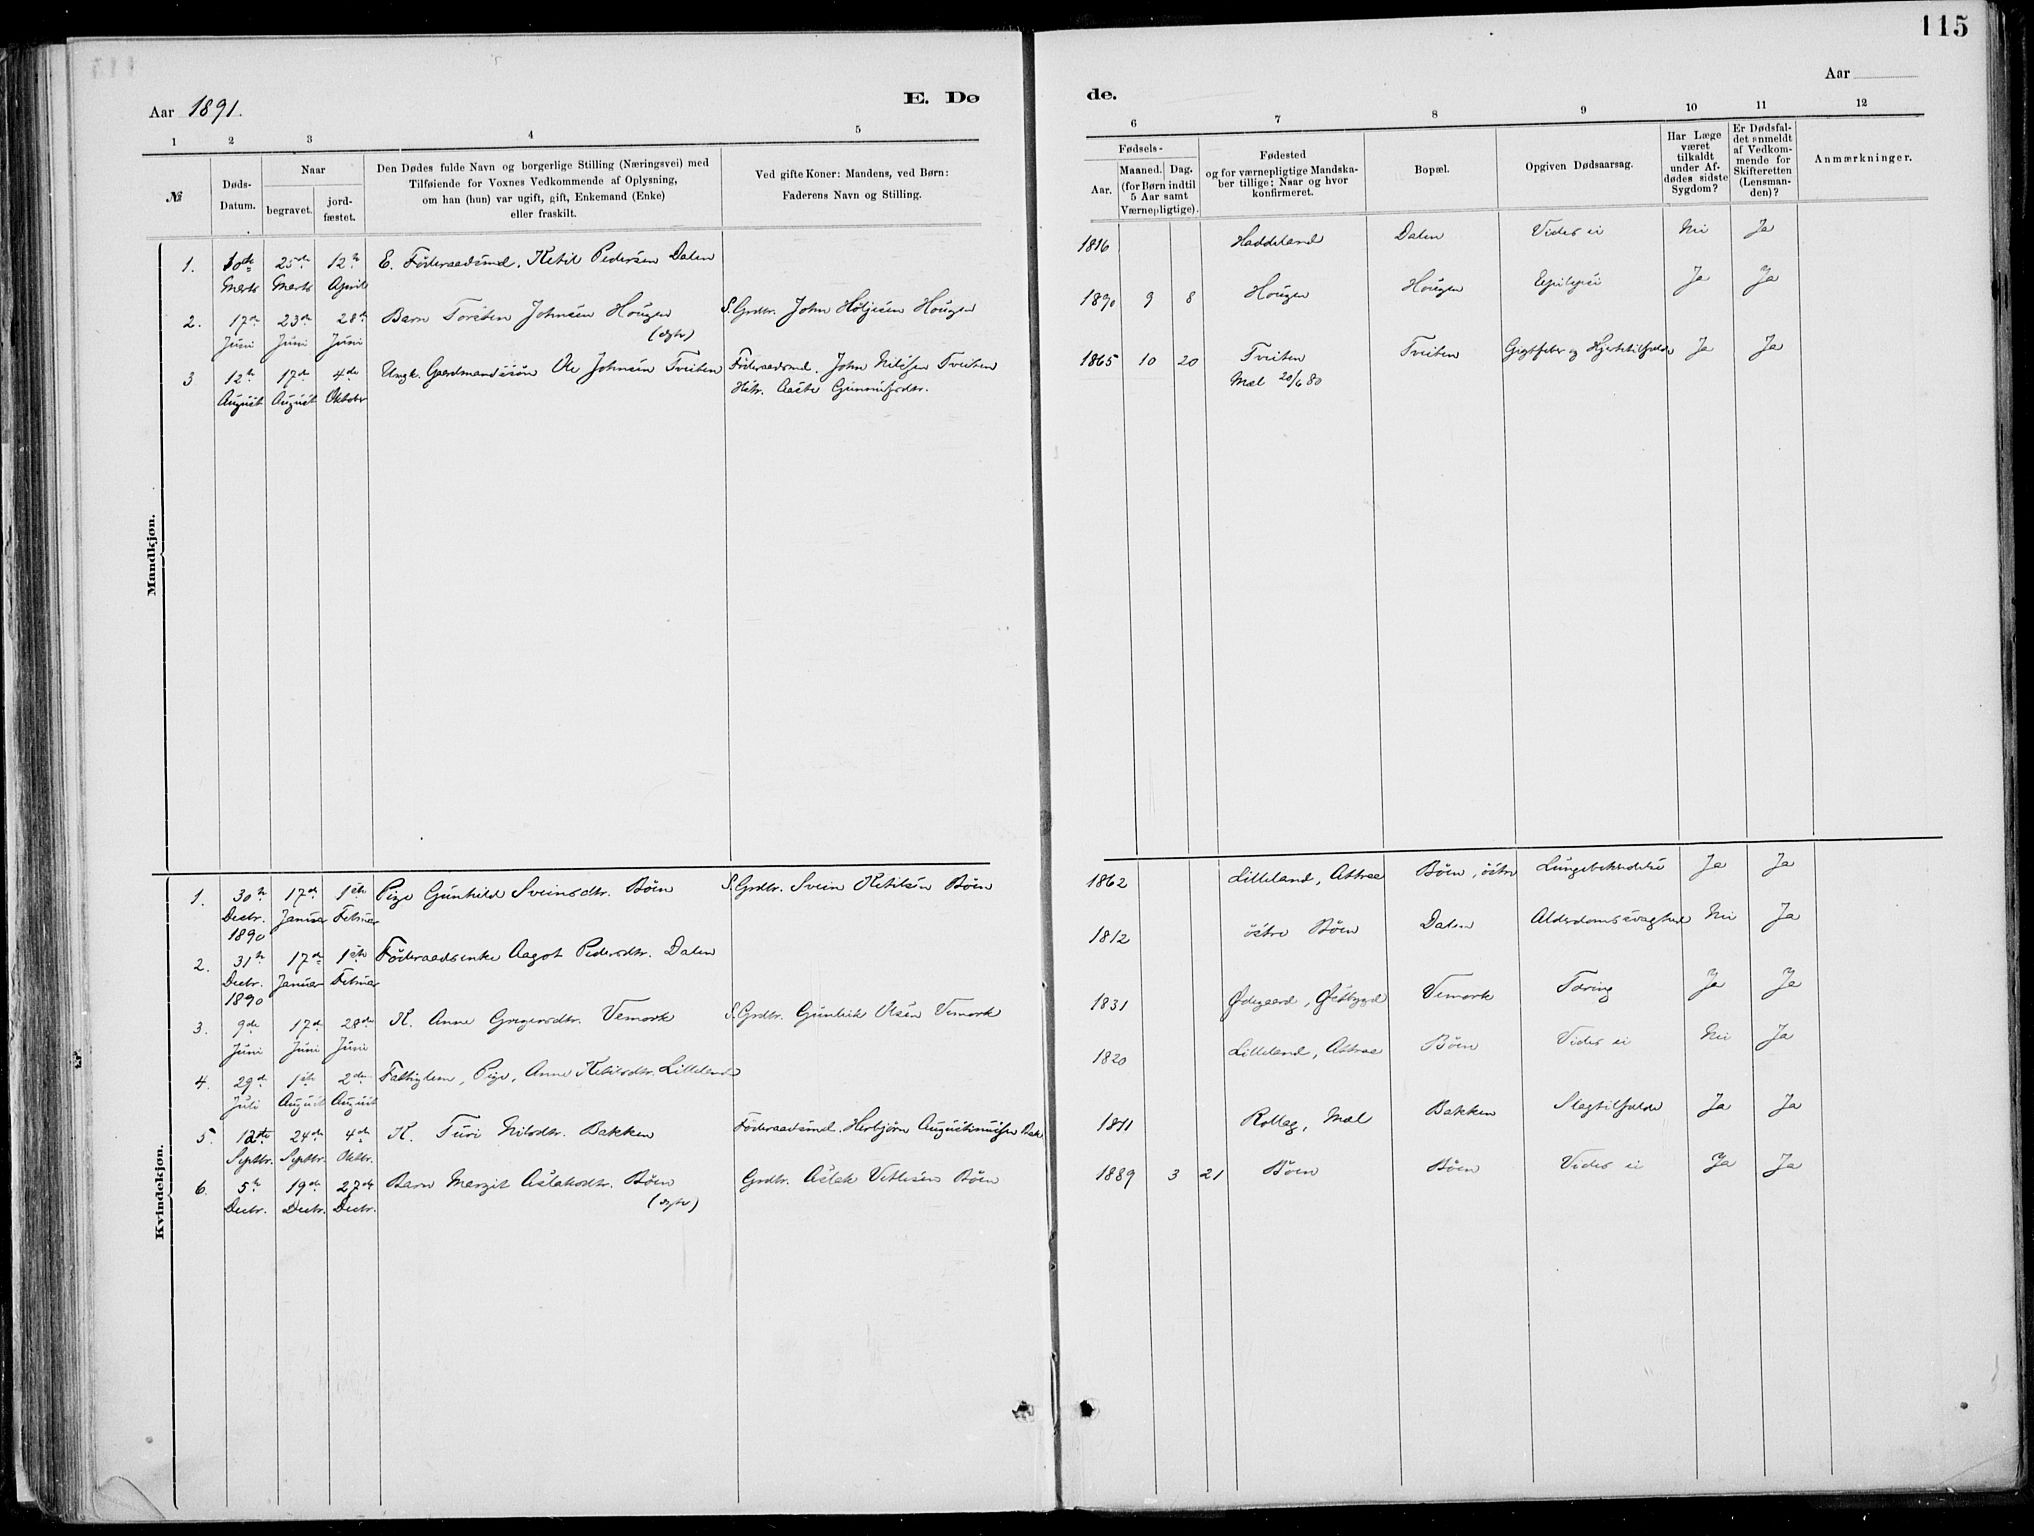 115
Aar 1891.
E. Dø
de.
Aar
1 2 3 4 5
6 7 8 9 10 11 12
№
Døds-
Datum.
Naar
begravet.
jord-
fæstet.
Den Dødes fulde Navn og borgerlige Stilling (Næringsvei) med
Tilføiende for Voxnes Vedkommende af Oplysning,
om han (hun) var ugift, gift, Enkemand (Enke)
eller fraskilt.
Ved gifte Koner: Mandens, ved Børn:
Faderens Navn og Stilling.
Fødsels-
Aar.
Maaned. Dag.
(for Børn indtil
5 Aar samt
Værnepligtige).
Fødested
og for værnepligtige Mandska-
ber tillige: Naar og hvor
konfirmeret.
Bopæl.
Opgiven Dødsaarsag.
Har Læge
været
tilkaldt
under Af-
dødes sidste
Sygdom?
Er Dødsfal-
det anmeldt
af Vedkom-
mende for
Skifteretten
(Lensman-
den)?
Anmærkninger.
Mandkjøn.
1. 10de 25de 12te E. Föderaadsmd. Ketil Pedersen Dalen 1816 Haddeland Dalen Vides ei Nei Ja
Marts Marts April
2. 17de 23de 28de Barn Torsten Johnsen Hougen S. Grdbr. John Höljesen Hougen 1890 9 8 Hougen Hougen Epilepsi Ja Ja
Juni Juni Juni (ægte)
3 12te 17de 4de Ungk. Gaardmandssön Ole Johnsen Tveiten Föderaadsmd. John Nilsen Tveiten 1865 10 20 Tveiten Tveiten Gigtfeber og Hjertetilfælde Ja Ja
August August Oktober Hstr. Aaste Gunnulfsdtr. Mæl 20/6 80
Kvindekjøn.
1. 30te 17de 1ste Pige Gunhild Sveinsdtr. Böen S. Grdbr. Svein Ketilsen Böen 1862 Lilleland, Attraa Böen, östre Lungebetændelse Ja Ja
Decbr. Januar Februar
1890
2. 31te 17de 1ste Föderaadsenke Aagot Pedersdtr. Dalen 1812 östre Böen Dalen Alderdomssvaghed Nei Ja
Decbr. Januar Februar
1890
3. 9de 17de 28de K. Anne Gregersdtr. Vemork S. Grdbr. Gunleik Olsen Vemork 1831 Ødegaard, Østbygd Vemork Tæring Ja Ja
Juni Juni Juni
4. 29de 1ste 2den Fattiglem, Pige, Anne Ketilsdtr. Lilleland 1820 Lilleland, Attraa Böen Vides ei Nei Ja
Juli August August
5. 12te 24de 4de K. Turi Nilsdtr. Bakken Föderaadsmd. Herbjörn Augustinussen Bak. 1811 Rollag, Mæl Bakken Slagtilfælde Ja Ja
Septbr. Septbr. Oktbr.
6. 5te 19de 27de Barn Margit Aslaksdtr. Böen Grdbr. Aslak Vetlesen Böen 1889 3 21 Böen Böen Vides ei Ja Ja
Decbr. Decbr. Decbr. (ægte)